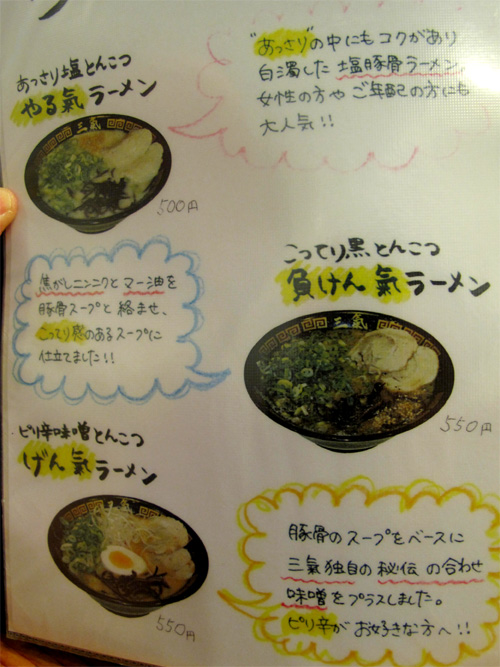 あっさり塩とんこつ
やる氣ラーメン
三氣
500円
"あっさり"の中にもコクがあり
白濁した 塩豚骨ラーメン。
女性の方や ご年配の方にも
大人気!!
こってり黒とんこつ
負けん氣ラーメン
三氣
550円
焦がしニンニクと マー油を
豚骨スープと 絡ませ、
こってり感のあるスープに
仕立てました!!
ピリ辛味噌とんこつ
げん氣ラーメン
三氣
550円
豚骨のスープをベースに
三氣独自の 秘伝 の合わせ
味噌をプラスしました。
ピリ辛が お好きな方へ!!